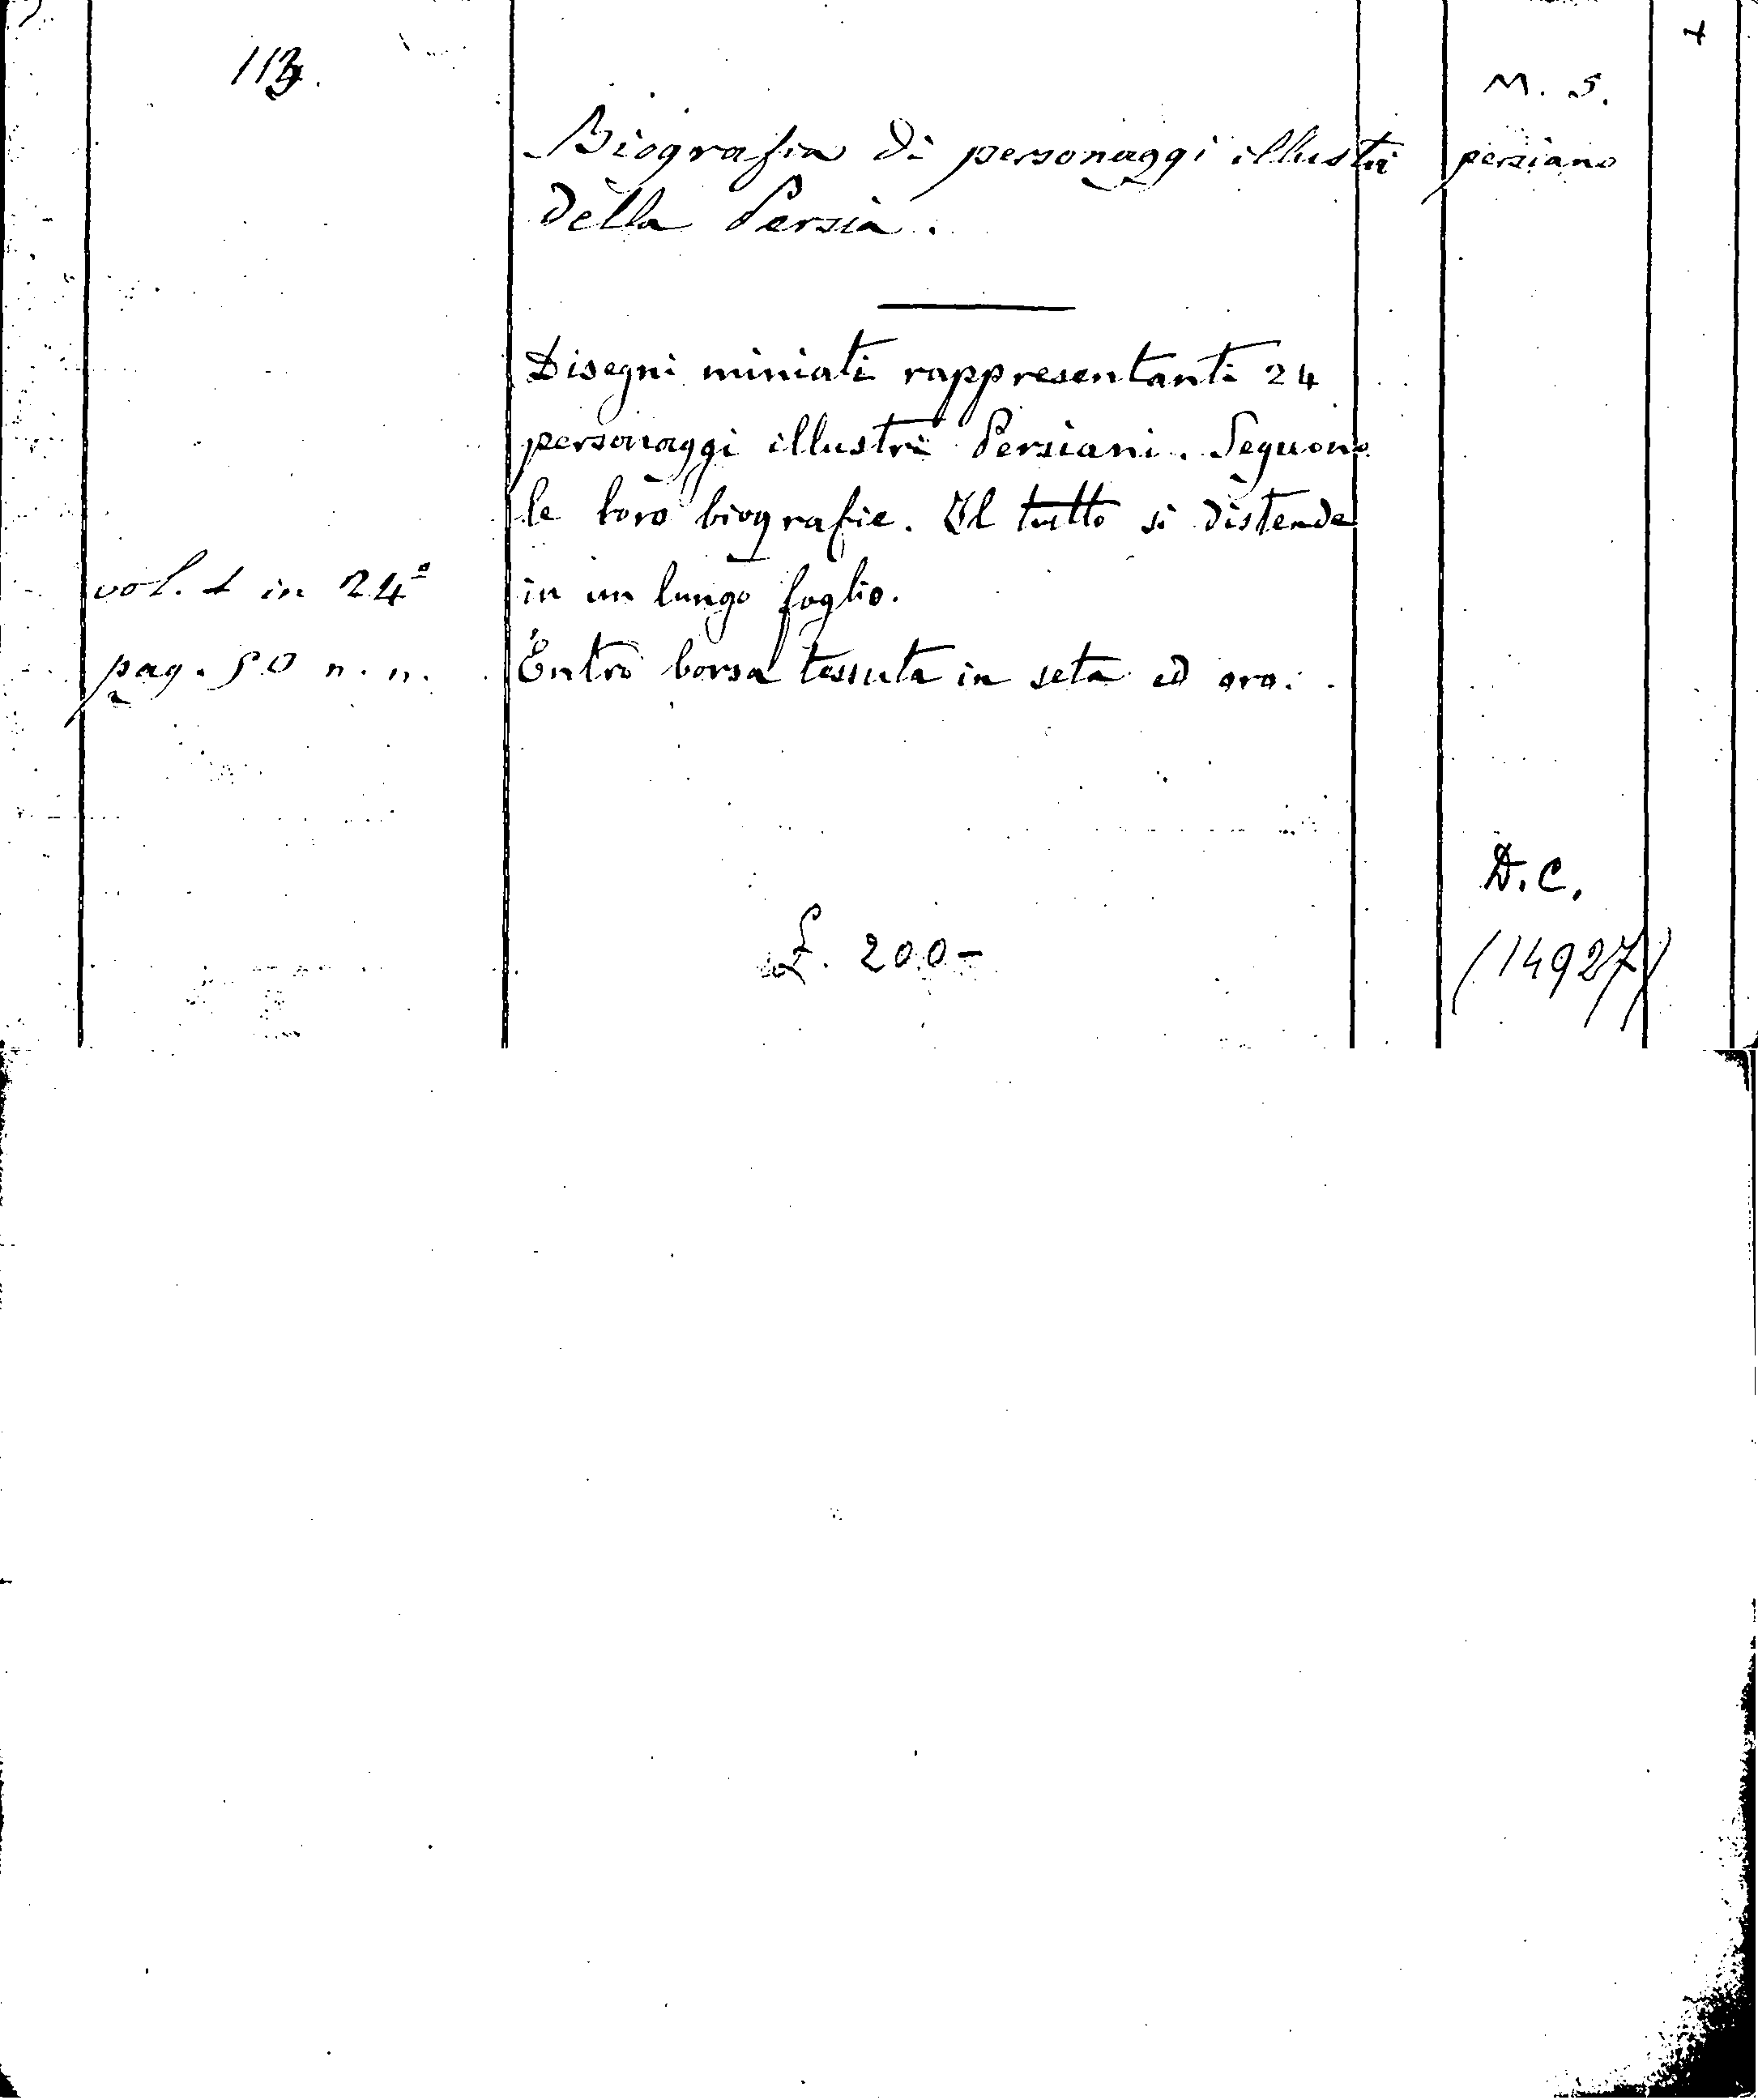 113.
M. S.
Biografia di personaggi illustri
persiano
della Persia.
Disegni miniati rappresentanti 24
personaggi illustri Persiani. Seguono
le loro biografie. Il tutto si distende
vol. 1 in 24°
in un lungo foglio.
pag. 50 n. n.
Entro borsa tessuta in seta ed oro.
D.C.
£. 200-
(14927)